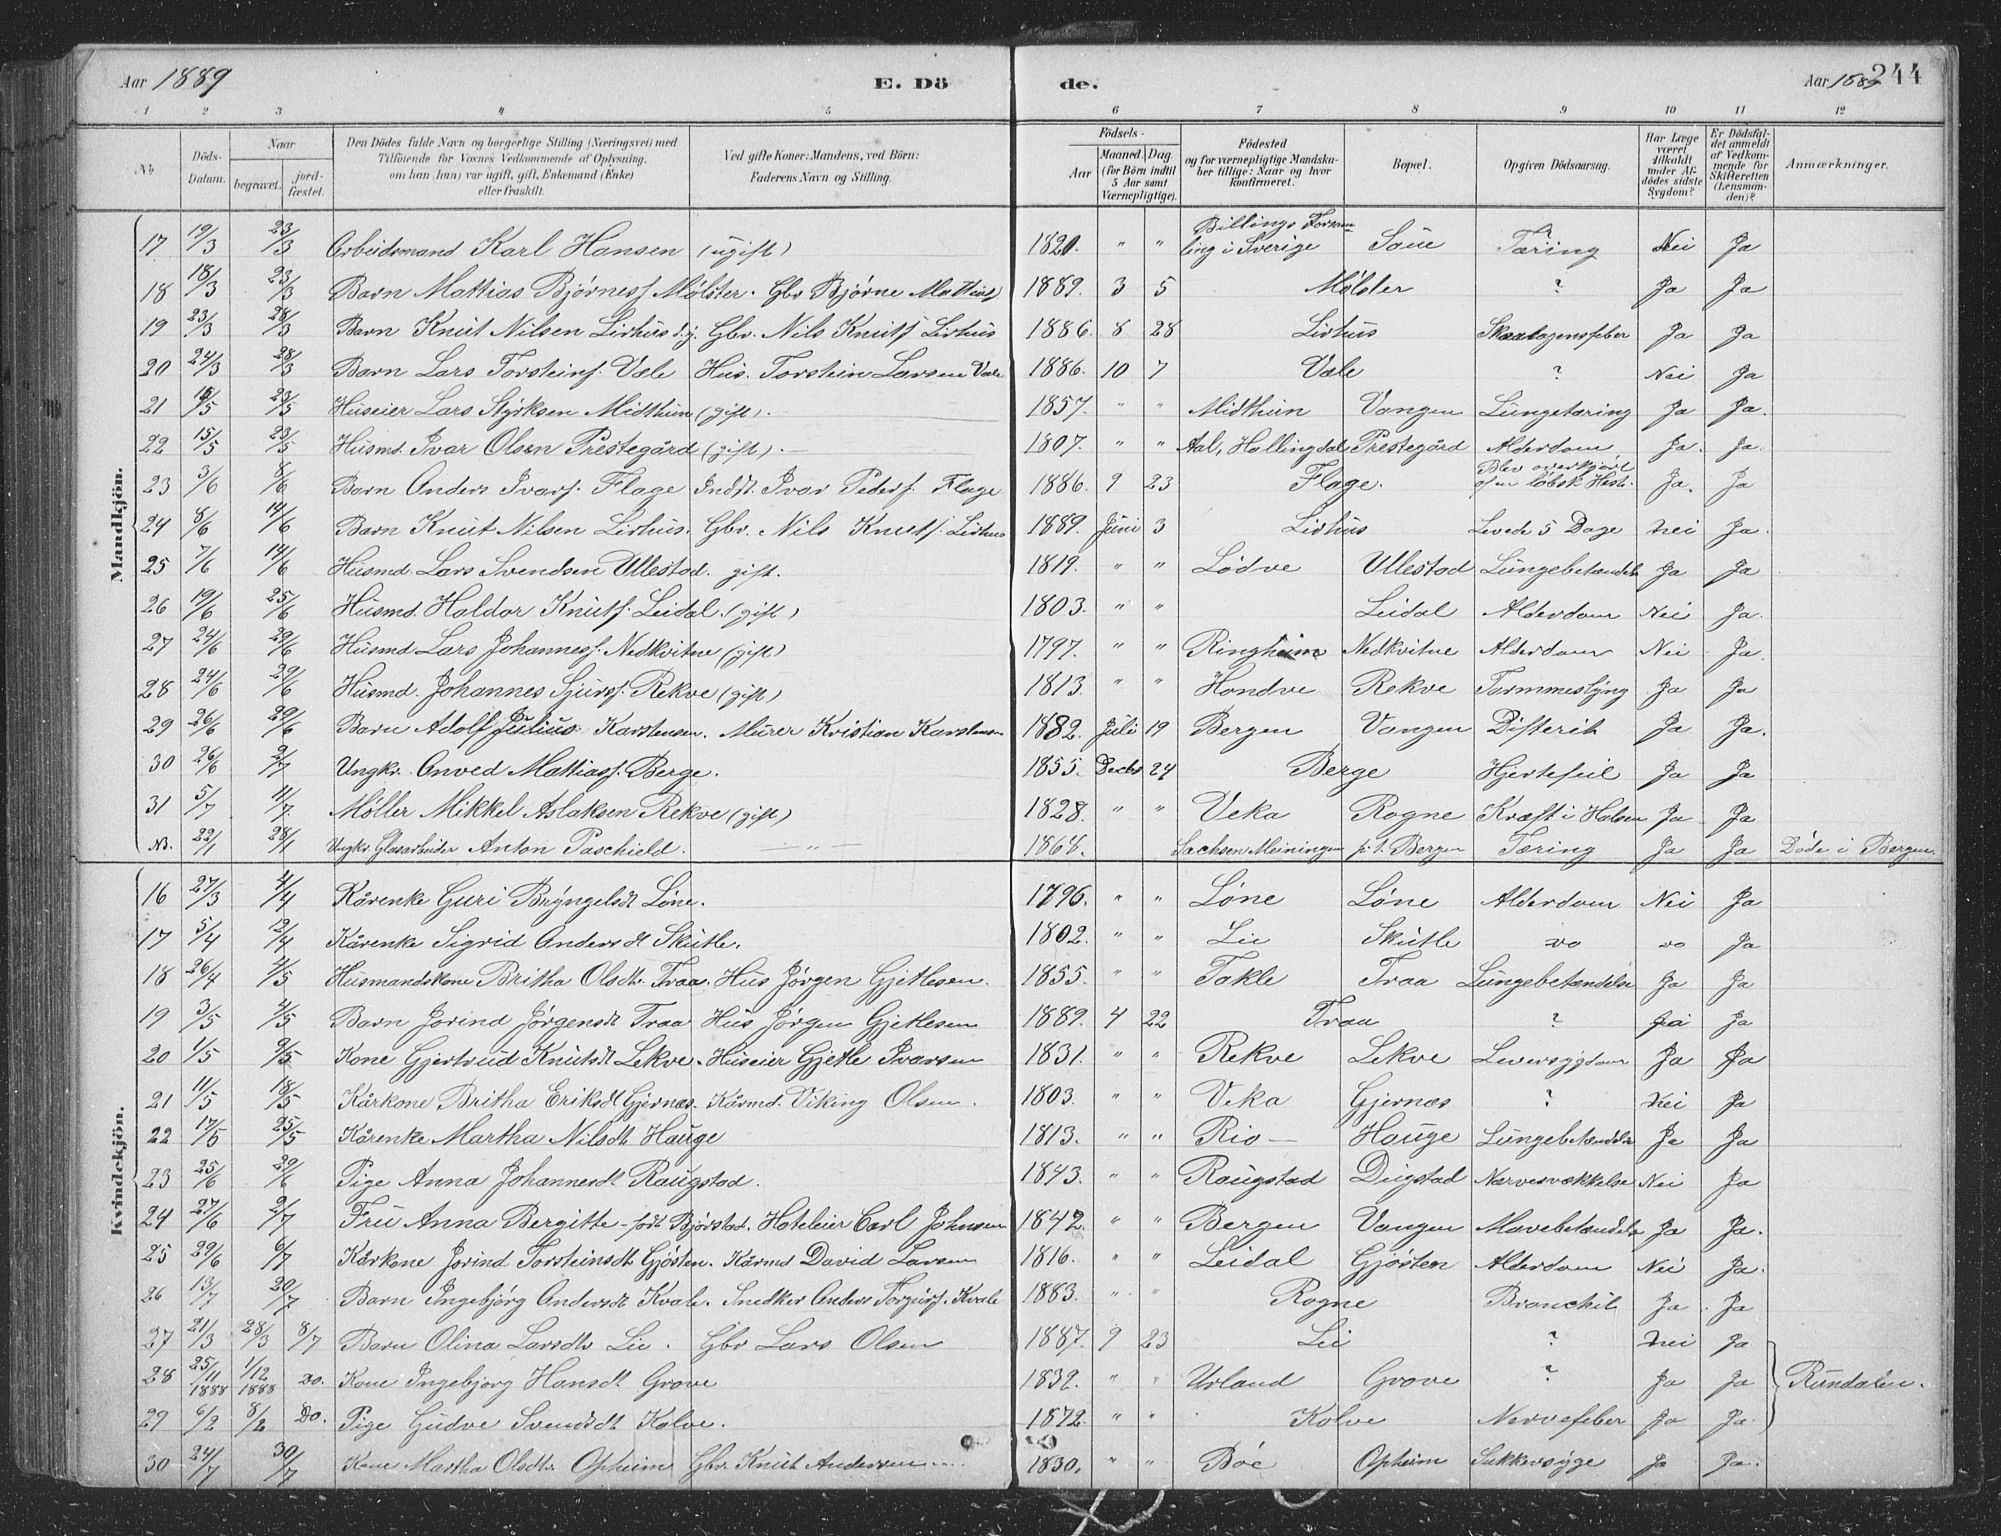 Aar 1889 E. Dö de. Aar 1889 244
1 2 3 4 5 6 7 8 9 10 11 12
No Döds-Datum. Naar begravet. jordfæstet. Den Dödes fulde Navn og borgerlige Stilling (Næringsvei) med Tilföiende for Voxnes Vedkommende af Oplysning, om han (hun) var ugift, gift, Enkemand (Enke) eller fraskilt. Ved gifte Koner: Mandens, ved Börn: Faderens Navn og Stilling. Födsels- Aar Maaned. Dag. (for Börn indtil 5 Aar samt Værnepligtige). Födested og for værnepligtige Mandskaber tillige: Naar og hvor konfirmeret. Bopæl. Opgiven Dödsaarsag. Har Læge været tilkaldt under Afdödes sidste Sygdom? Er Dödsfaldet anmeldt af Vedkommende for Skifteretten (Lensmanden)? Anmærkninger.
Mandkjön.
17 19/3 23/3 Arbeidsmand Karl Hansen (ugift) 1820. " " Billings i Sverige Saue Tæring ? Nei Ja
18 18/3 23/3 Barn Mattias Bjørness. Mølster. Gbr Bjørne Mattias 1889. 3 5 Mølster ? Ja Ja
19 23/3 28/3 Barn Knut Nilsen Lirhus d.y. Gbr. Nils Knuts. Lirhus 1886. 8 28 Lirhus Skarlagensfeber Ja Ja
20 24/3 28/3 Barn Lars Torsteins. Væle Hus. Torstein Larsen Væle 1886. 10 7 Væle ? Nei Ja
21 /5 23/5 Huseier Lars Styrksen Midthun (gift). 1857. " " Midthun Vangen Lungetæring Ja Ja.
22 15/5 23/5 Husmd. Ivar Olsen Prestegård (gift). — 1807. " " Aal, Hallingdal Prestegård Alderdom Ja. Ja.
23 3/6 8/6 Barn Anders Ivars. Flage Indst. Ivar Peders. Flage 1886. 9 23 Flage. Blev overkjørt af en løbsk Hest. Ja. Ja
24 8/6 14/6 Barn Knut Nilsen Lirhus. Gbr. Nils Knuts. Lirhus 1889. Juni 3 Lirhus Levede 5 Dage Nei Ja.
25 7/6 14/6 Husmd. Lars Svendsen Ullestad. gift. 1819. " " Lødve Ullestad Lungebetændelse Ja Ja
26 19/6 25/6 Husmd. Haldor Knuts. Leidal. (gift) 1803. " " Leidal Alderdom Nei Ja.
27 24/6 29/6 Husmd Lars Johanness. Nedkvitne (gift) 1797. " " Ringheim Nedkvitne Alderdom Nei Ja.
28 24/6 29/6 Husmd. Johannes Sjurss. Rekve (gift) 1813. " " Hondve Rekve Tarmmeslyng Ja Ja
29 26/6 29/6 Barn Adolf Julius Karstensen. Murer Kristian Karstensen 1882. Juli 19 Bergen Vangen Difterit Ja Ja.
30 26/6 2/7 Ungkr. Anved Mattiass. Berge. 1855. Decbr 24 Berge Hjertefeil Ja Ja
31 5/7 11/7. Møller Mikkel Aslaksen Rekve (gift) 1828. " " Veka Rogne Kræft i Halsen Ja Ja
NB. 22/1 28/1 Ungkr. Glasarbeider Anton Paschield. — " — 1868. Sachsen Meiningen p.t. Bergen Tæring Ja Ja Døde i Bergen.
Kvindekjön.
16 27/3 4/4 Kårenke Guri Bryngelsdt Løne. 1796. " " Løne Løne Alderdom Nei Ja
17 5/4 12/4 Kårenke Sigrid Andersdt Skutle. 1802. " " Lie Skutle do do Ja
18 26/4 4/5 Husmandskone Britha Olsdtr. Traa. Hus Jørgen Gjetlesen. 1855. " " Takle Traa Lungebetændelse Ja Ja
19 3/5 4/5 Barn Jorind Jørgensdt Traa Hus Jørgen Gjetlesen 1889. 4 22 Traa ? Ja
20 1/5 9/5 Kone Gjertrud Knutsdt Lekve. Huseier Gjetle Ivarsen 1831. " " Rekve Lekve Leversygdom Ja Ja
21 11/5 18/5 Kårkone Britha Eriksdt Gjernæs. Kårmd. Viking Olsen. 1803. " " Veka Gjernæs ? Nei Ja
22 17/5 25/5 Kårenke Martha Nilsdt Hauge 1813. " " Rio — Hauge Lungebetændelse Ja Ja
23 25/6 29/6 Pige Anna Johannesdt Raugstad. 1843. " " Raugstad Dugstad Nærvesvækkelse Nei Ja
24 27/6 2/7 Fru Anna Bergitte – født Bjørstad. Hoteleier Carl Johnsen 1842. " " Bergen Vangen Mavebetændelse Ja Ja.
25 29/6 6/7 Kårkone Jorind Torsteinsdt Gjøsten. Kårmd David Larsen 1816. " " Leidal Gjøsten Alderdom Nei Ja.
26 13/7 20/7 Barn Ingebjørg Andersdt Kvale. Snedker Anders Torgeirs. Kvale 1883. " " Rogne Bronchit Ja. Ja
27 21/3 28/3 8/7 Barn Olina Larsdtr Lie. Gbr Lars Olsen 1887. 9 23 Lie ? Nei Ja
28 25/11 1888 1/12 1888 Do. Kone Ingebjørg Hansdt Grove 1832. " " Urland Grove ? Ja Ja Rundalen.
29 6/2 8/2 Do. Pige Gudve Svendsdt Kolve. 1872. " " Kolve Nervefeber Ja Ja.
30 24/7 30/7 Kone Martha Olsdtr. Opheim Gbr. Knut Andersen 1830. " " Bøe Opheim Sukkersyge Ja Ja.